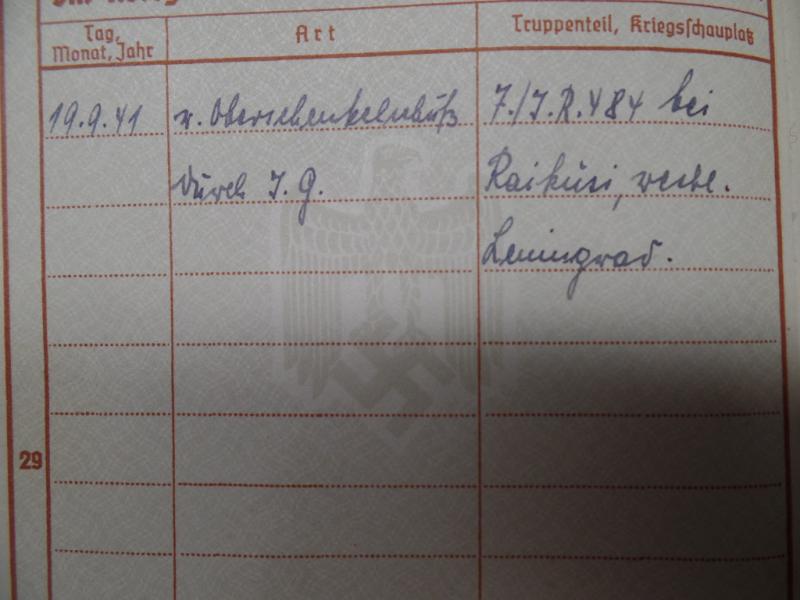 Tag,
Monat, Jahr
Art
Truppenteil, Kriegsschauplatz
19.9.41
r. Oberschenkelschuß
7./J.R. 484 bei
durch J. G.
Raikusi, westl.
Leningrad.
29